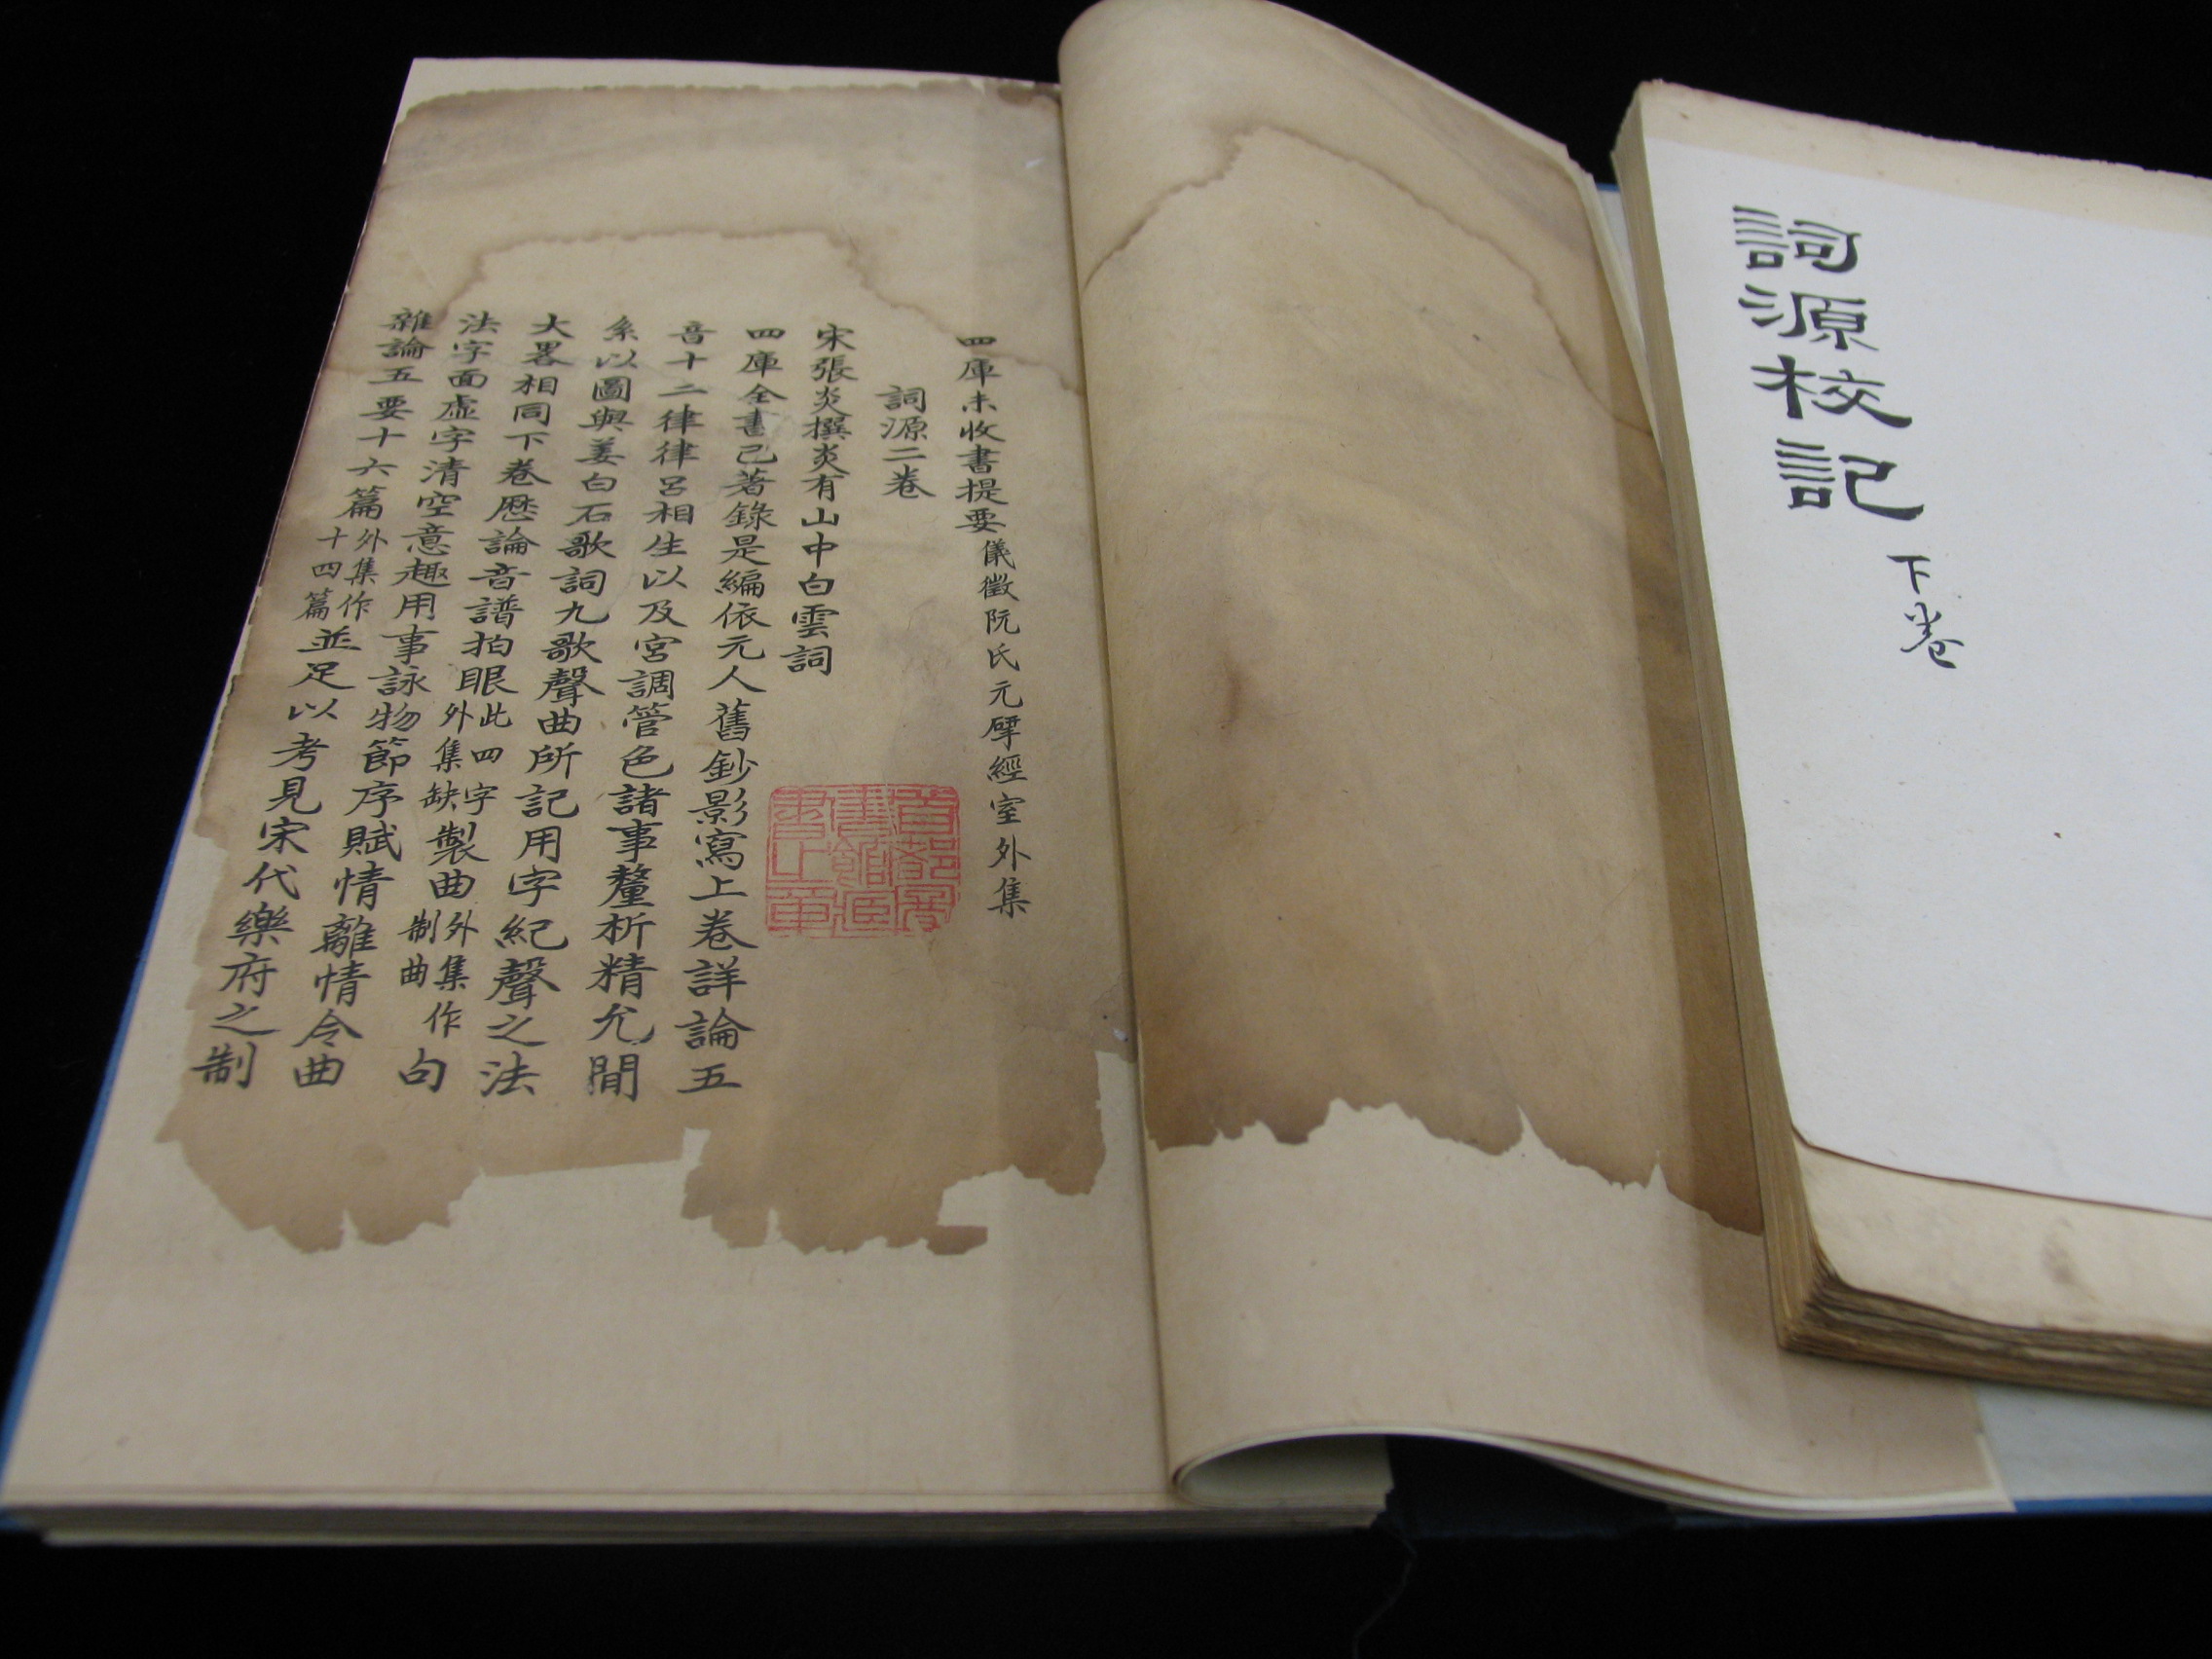 詞源校記
下卷
四庫未收書提要 儀徵阮氏元揅經室外集
詞源二卷
宋張炎撰炎有山中白雲詞
四庫全書已著錄是編依元人舊鈔影寫上卷詳論五
音十二律律呂相生以及宮調管色諸事釐析精允間
系以圖與姜白石歌詞九歌聲曲所記用字紀聲之法
大畧相同下卷歷論音譜拍眼此四字外集缺製曲外集作制曲句
法字面虛字清空意趣用事詠物節序賦情離情令曲
雜論五要十六篇外集作十四篇並足以考見宋代樂府之制
首都圖書館藏書之章